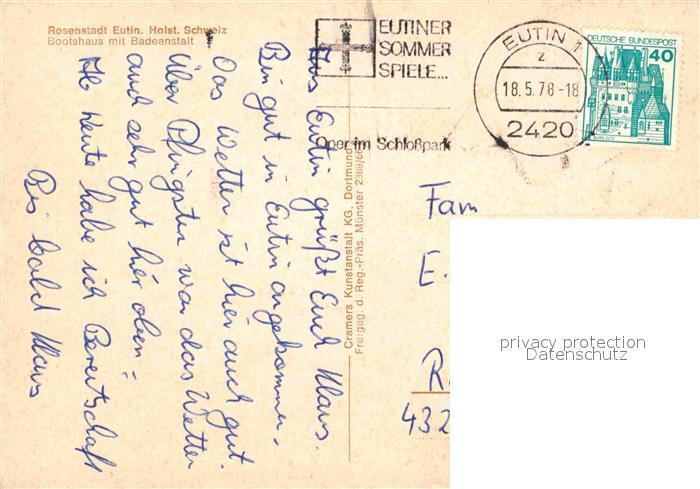 Rosenstadt Eutin. Holst. Schweiz
Bootshaus mit Badeanstalt
Aus Eutin grüßt Euch Klaus.
Bin gut in Eutin angekommen.
Das Wetter ist hier auch gut.
Über Pfingsten war das Wetter
auch sehr gut hier oben.
Ab Heute habe ich Bereitschaft
Bis bald Klaus
Cramers Kunstanstalt KG, Dortmund
Freigeg. d. Reg.-Präs. Münster
EUTINER
SOMMER
SPIELE...
Oper im Schloßpark
EUTIN 1
z
18.5.78-18
2420
DEUTSCHE BUNDESPOST
40
Fam
E.
R
432
privacy protection
Datenschutz